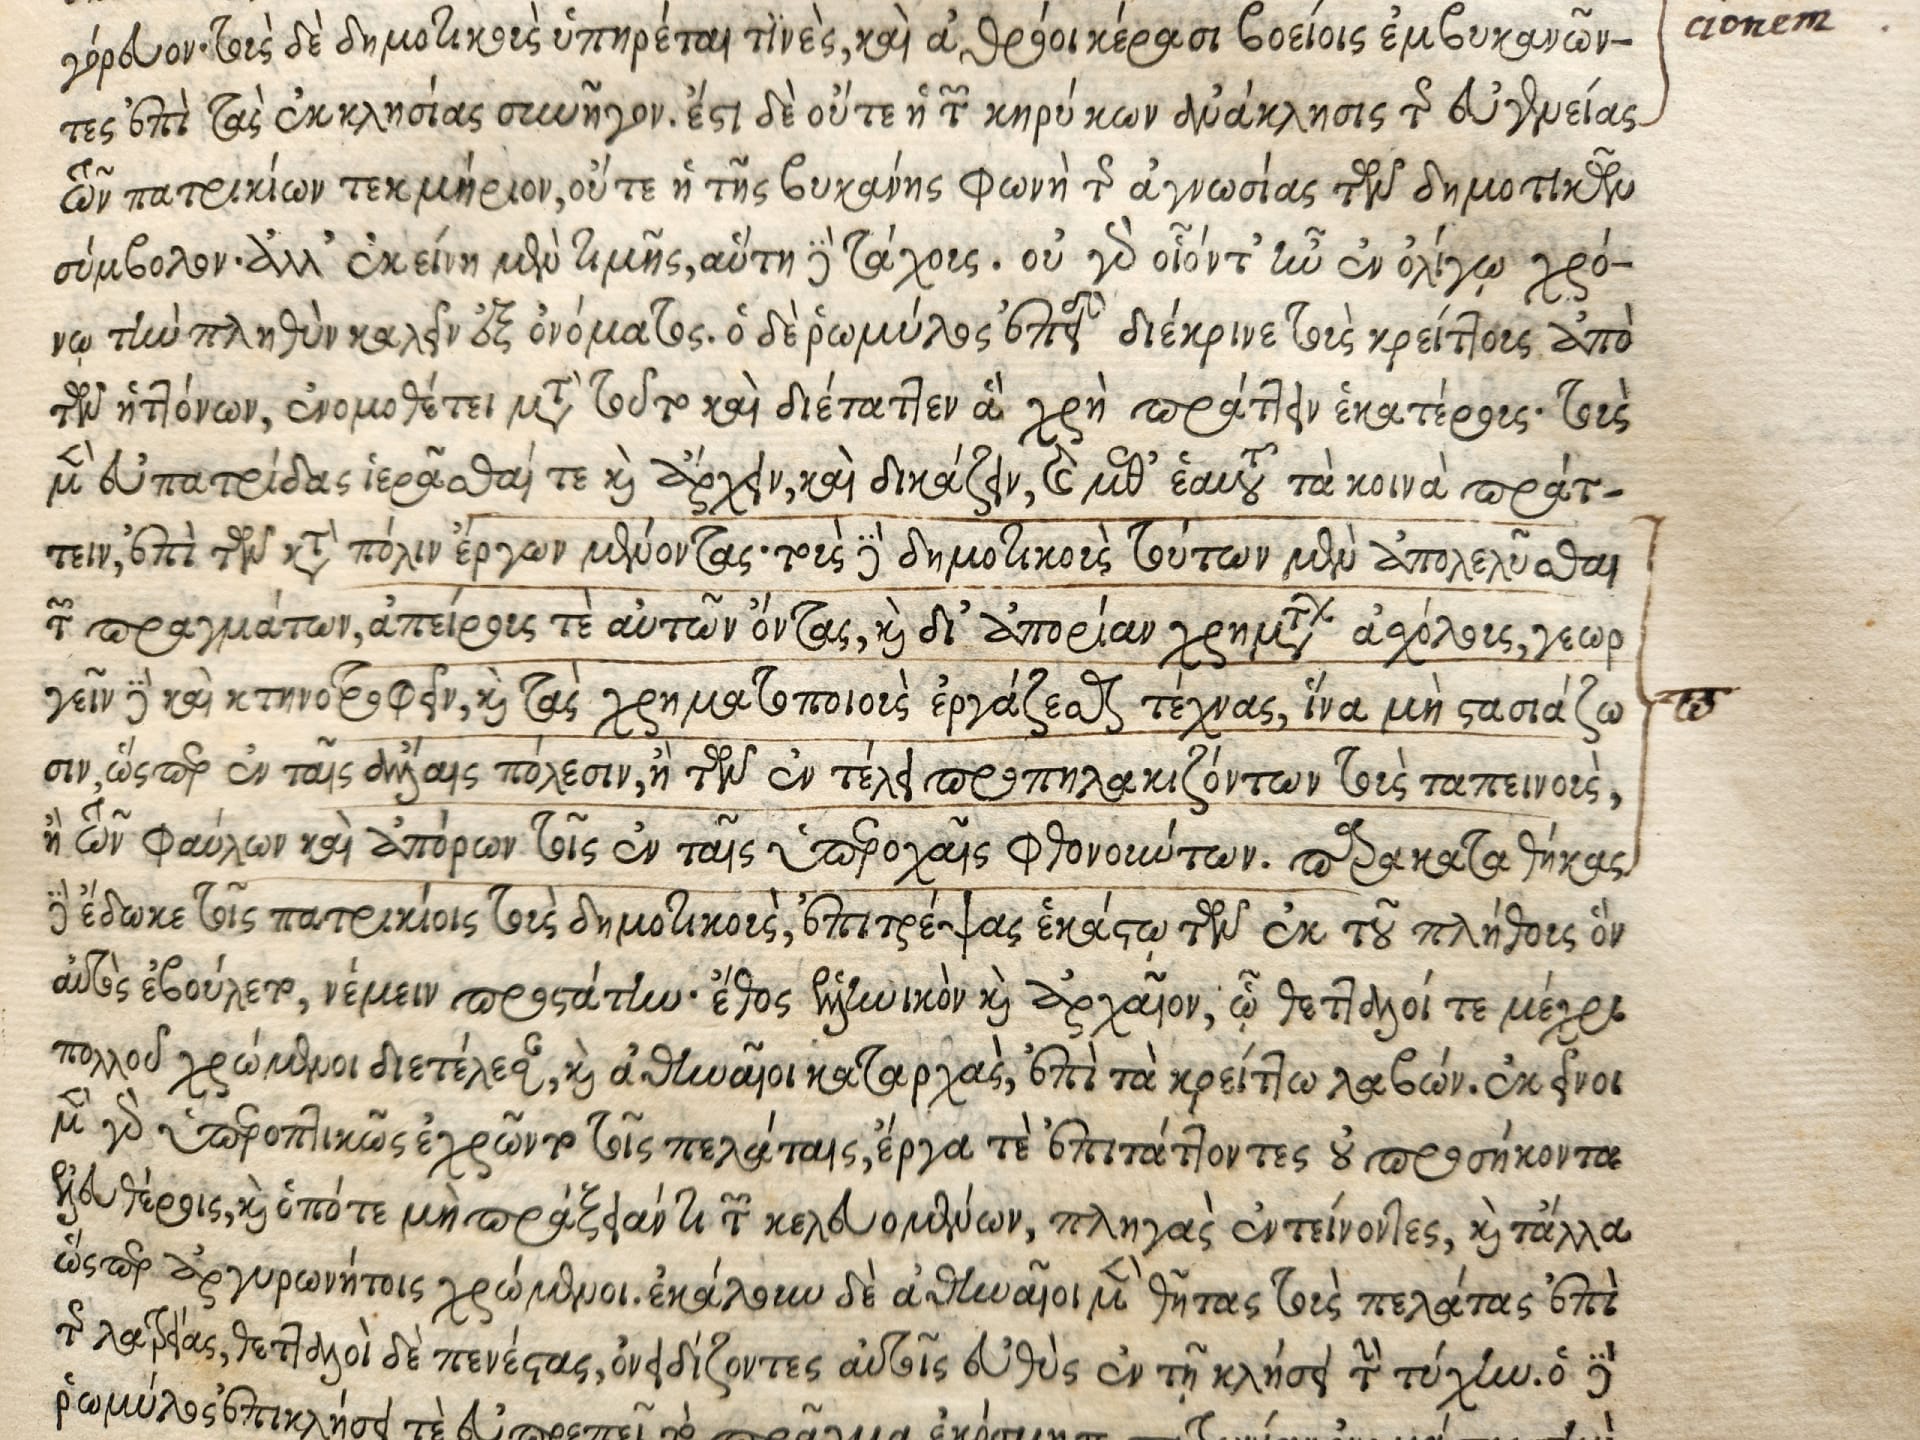 γόρευον· τοὺς δὲ δημοτικοὺς ὑπηρέται τινὲς, καὶ ἀθρόοι κέρασι βοείοις ἐμβυκανῶν-
cionem
τες ἐπὶ τὰς ἐκκλησίας συνῆγον. ἔστι δὲ οὔτε ἡ τῶν κηρύκων ἀνάκλησις τῆς εὐγενείας
τῶν πατρικίων τεκμήριον, οὔτε ἡ τῆς βυκάνης φωνὴ τῆς ἀγνωσίας τῶν δημοτικῶν
σύμβολον· ἀλλ' ἐκείνη μὲν τιμῆς, αὕτη δὲ τάχους. οὐ γὰρ οἷόντ' ἦν ἐν ὀλίγῳ χρό-
νῳ τὴν πληθὺν καλεῖν ἐξ ὀνόματος. ὁ δὲ ῥωμύλος ἐπειδὴ διέκρινε τοὺς κρείττους ἀπὸ
τῶν ἡττόνων, ἐνομοθέτει μετὰ τοῦτο καὶ διέταττεν ἃ χρὴ πράττειν ἑκατέρους· τοὺς
μὲν εὐπατρίδας ἱερᾶσθαί τε καὶ ἄρχειν, καὶ δικάζειν, καὶ μεθ' ἑαυτοῦ τὰ κοινὰ πράτ-
τειν, ἐπὶ τῶν κατὰ πόλιν ἔργων μένοντας· τοὺς δὲ δημοτικοὺς τούτων μὲν ἀπολελῦσθαι
τῶν πραγμάτων, ἀπείρους τὲ αὐτῶν ὄντας, καὶ δι' ἀπορίαν χρημάτων ἀσχόλους, γεωρ
γεῖν δὲ καὶ κτηνοτροφεῖν, καὶ τὰς χρηματοποιοὺς ἐργάζεσθαι τέχνας, ἵνα μὴ στασιάζω
σιν, ὥσπερ ἐν ταῖς ἄλλαις πόλεσιν, ἢ τῶν ἐν τέλει προπηλακιζόντων τοὺς ταπεινοὺς,
ἢ τῶν φαύλων καὶ ἀπόρων τοῖς ἐν ταῖς ὑπεροχαῖς φθονούντων. παρακαταθήκας
δὲ ἔδωκε τοῖς πατρικίοις τοὺς δημοτικοὺς, ἐπιτρέψας ἑκάστῳ τῶν ἐκ τοῦ πλήθους ὃν
αὐτὸς ἐβούλετο, νέμειν προστάτην· ἔθος ἑλληνικὸν καὶ ἀρχαῖον, ᾧ θετταλοί τε μέχρι
πολλοῦ χρώμενοι διετέλεσαν, καὶ ἀθηναῖοι καταρχὰς, ἐπὶ τὰ κρείττω λαβών. ἐκεῖνοι
μὲν γὰρ ὑπεροπτικῶς ἐχρῶντο τοῖς πελάταις, ἔργα τὲ ἐπιτάττοντες οὐ προσήκοντα
ἐλευθέροις, καὶ ὁπότε μὴ πράξειάν τι τῶν κελευομένων, πληγὰς ἐντείνοντες, καὶ τἄλλα
ὥσπερ ἀργυρωνήτοις χρώμενοι. ἐκάλουν δὲ ἀθηναῖοι μὲν θῆτας τοὺς πελάτας ἐπὶ
τῆς λατρείας, θετταλοὶ δὲ πενέστας, ὀνειδίζοντες αὐτοῖς εὐθὺς ἐν τῇ κλήσει τὴν τύχην. ὁ δὲ
ῥωμύλος ἐπικλήσει τὲ εὐπρεπεῖ τὸ πρᾶγμα ἐκόσμησε